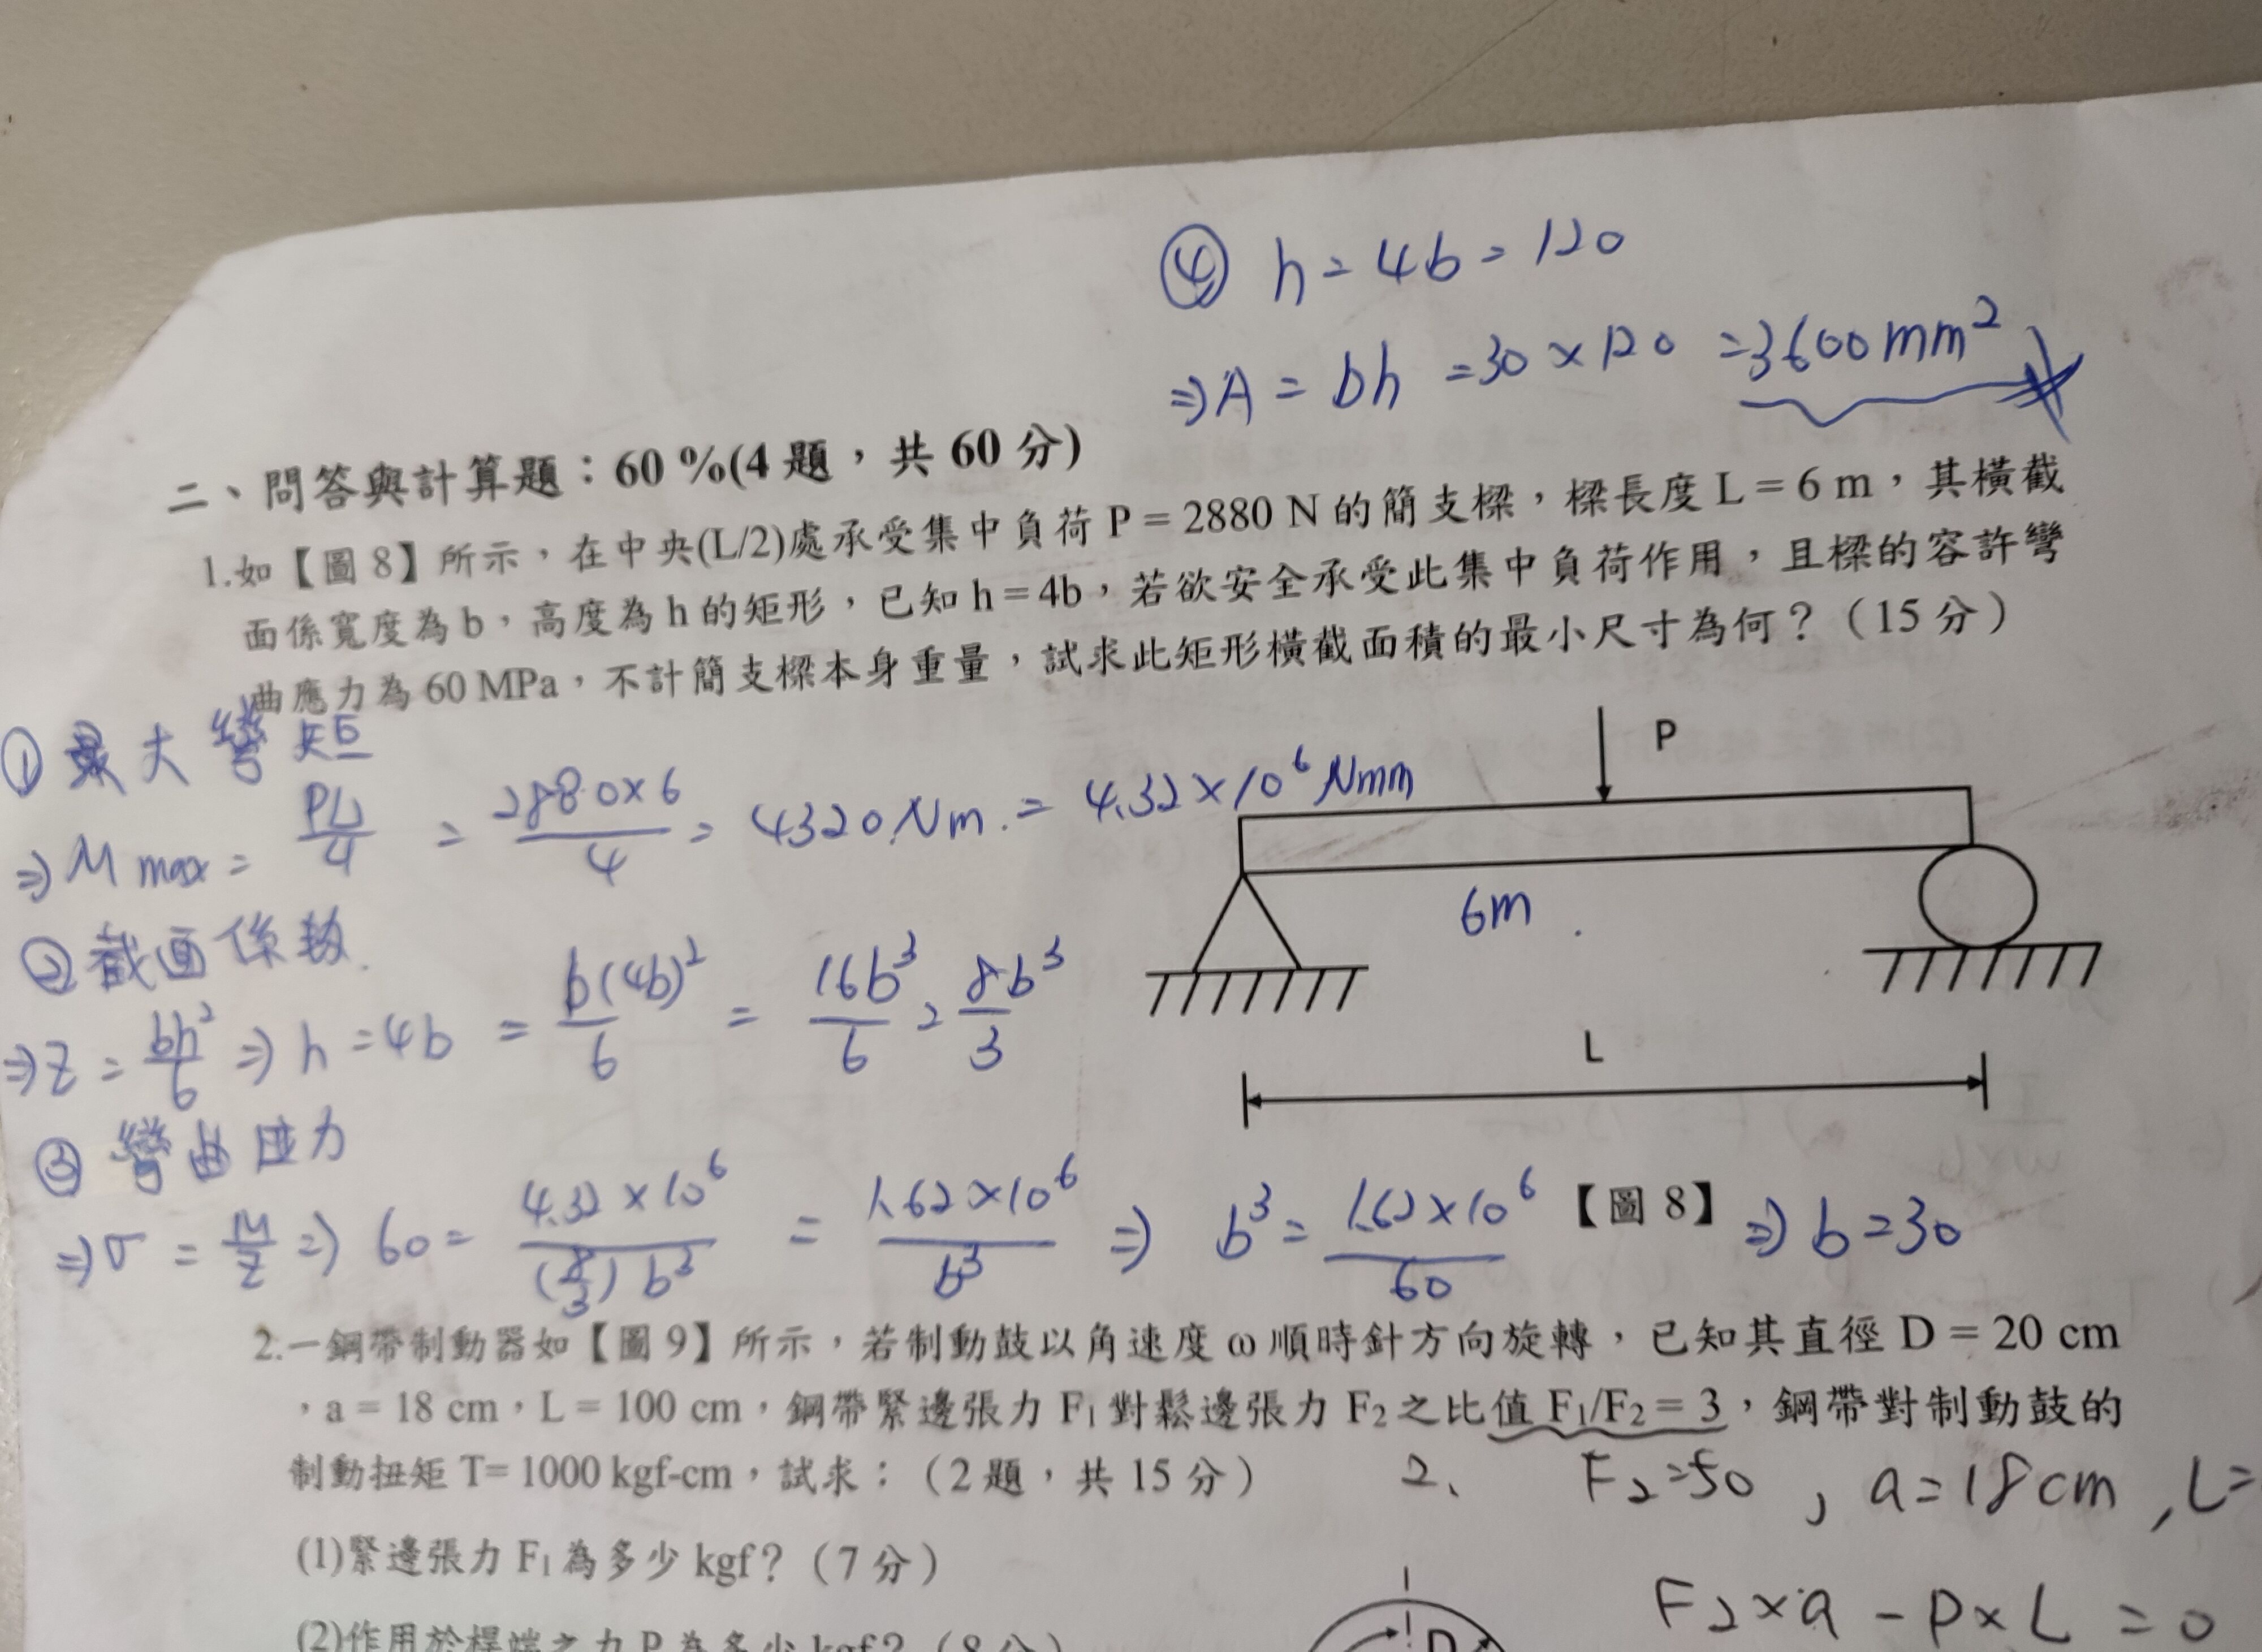 ④ h = 4b = 120
⇒ A = bh = 30 × 120 = 3600 mm²
二、問答與計算題：60 %(4 題，共 60 分)
1.如【圖 8】所示，在中央(L/2)處承受集中負荷 P = 2880 N 的簡支樑，樑長度 L = 6 m，其橫截
面係寬度為 b，高度為 h 的矩形，已知 h = 4b，若欲安全承受此集中負荷作用，且樑的容許彎
曲應力為 60 MPa，不計簡支樑本身重量，試求此矩形橫截面積的最小尺寸為何？（15 分）
① 最大彎矩
⇒ M max = PL/4 = 2880×6/4 = 4320 Nm = 4.32×10⁶ Nmm
P
6m
② 截面係數
⇒ Z = bh²/6 ⇒ h = 4b = b(4b)²/6 = 16b³/6 = 8b³/3
L
③ 彎曲应力
⇒ σ = M/Z ⇒ 60 = 4.32×10⁶/(8/3)b³ = 1.62×10⁶/b³ ⇒ b³ = 1.62×10⁶/60 ⇒ b = 30
【圖 8】
2.一鋼帶制動器如【圖 9】所示，若制動鼓以角速度 ω 順時針方向旋轉，已知其直徑 D = 20 cm
，a = 18 cm，L = 100 cm，鋼帶緊邊張力 F₁ 對鬆邊張力 F₂ 之比值 F₁/F₂ = 3，鋼帶對制動鼓的
制動扭矩 T= 1000 kgf-cm，試求：（2 題，共 15 分）
2、 F₂=50 , a=18cm , L=
(1)緊邊張力 F₁ 為多少 kgf？（7 分）
F₂×a - P×L = 0
(2)作用於桿端之力 P 為多少 kgf？（8 分）
D